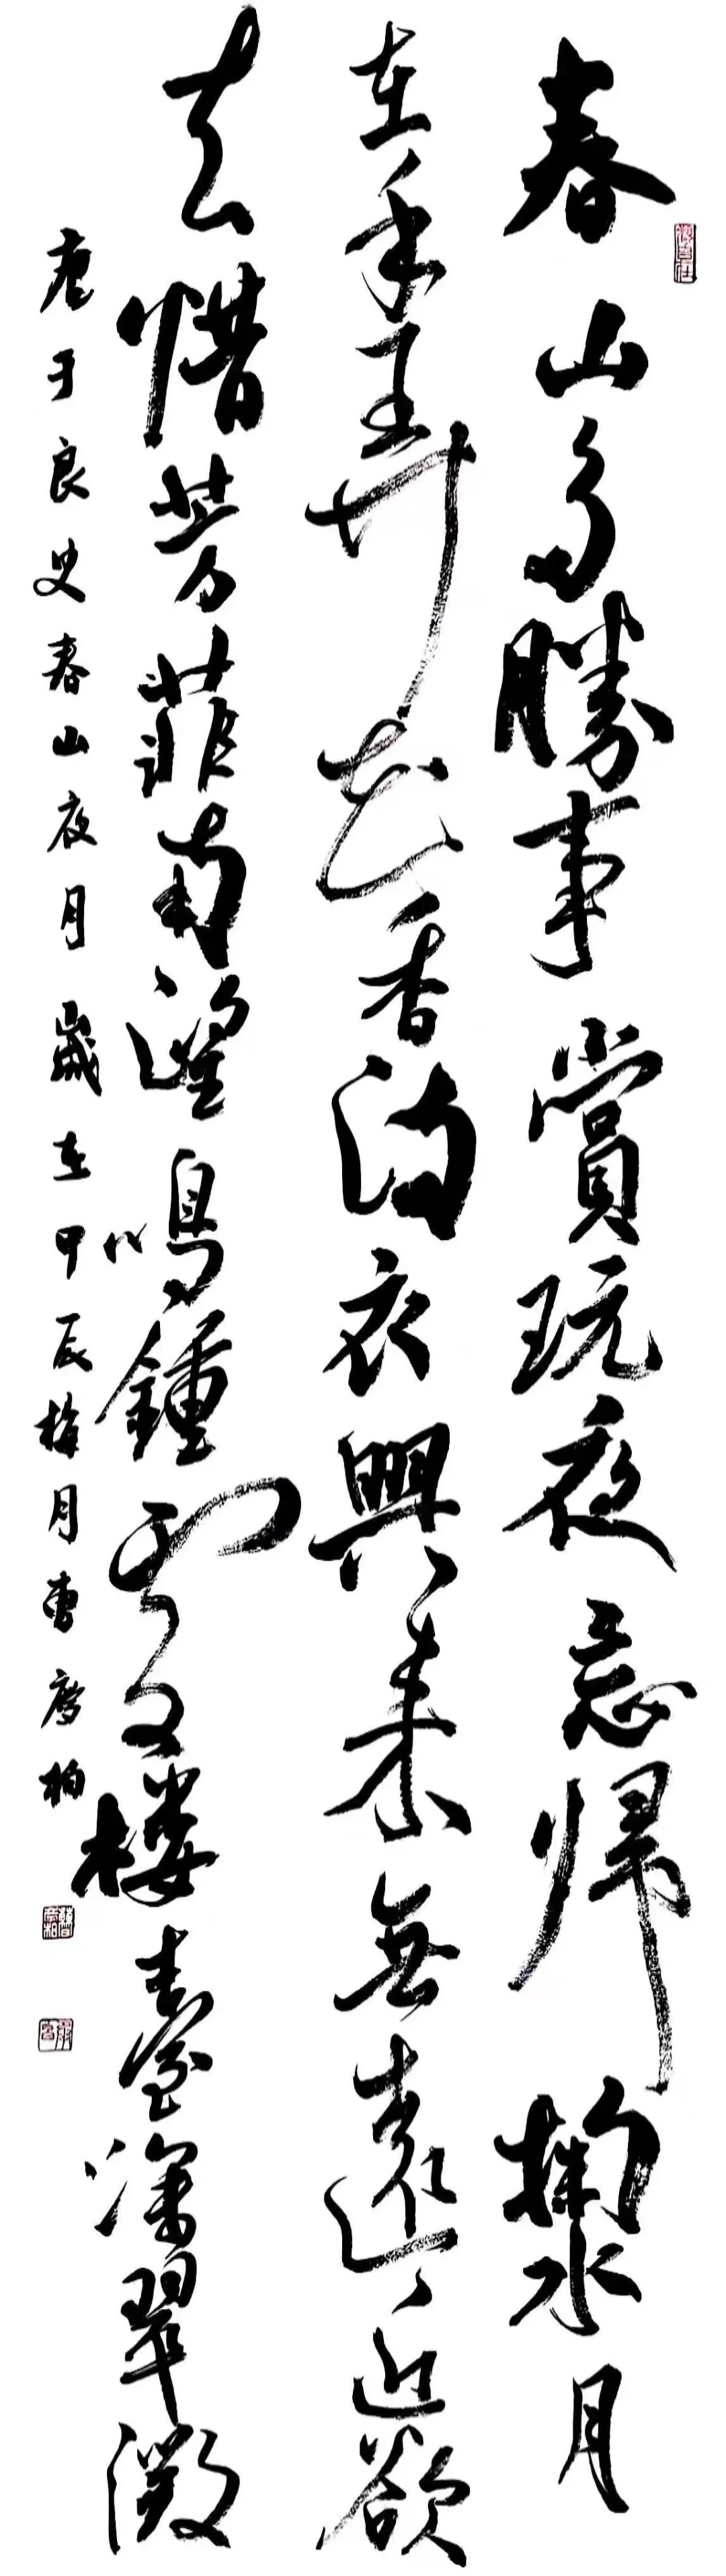 春山多勝事賞玩夜忘歸掬水月
在手弄花香滿衣興來無遠近欲
去惜芳菲南望鳴鍾處樓臺深翠微
唐于良史春山夜月歲在甲辰梅月曹彦柏